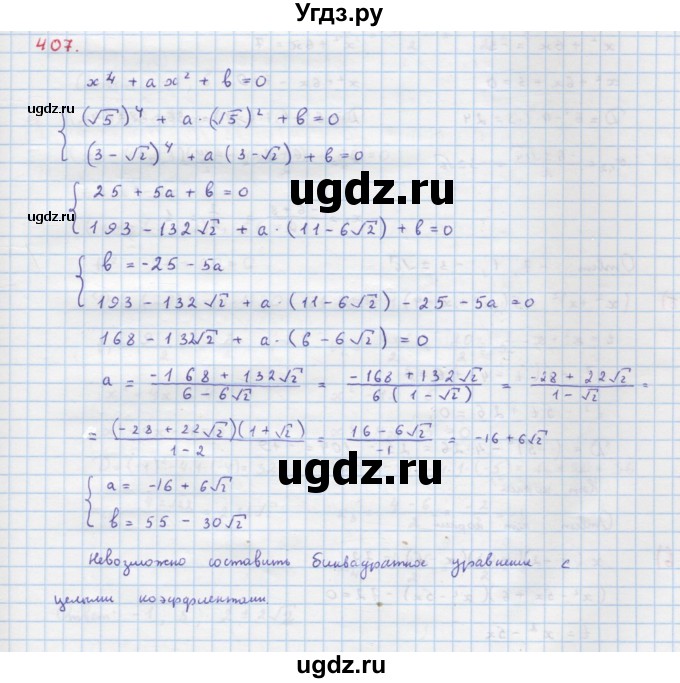 Угдз.ру
407.
x⁴ + ax² + b = 0
(√5)⁴ + a·(√5)² + b = 0
(3 - √2)⁴ + a(3 - √2) + b = 0
ugdz.ru
25 + 5a + b = 0
ugdz.ru
ugdz.ru
193 - 132√2 + a·(11 - 6√2) + b = 0
b = -25 - 5a
193 - 132√2 + a·(11 - 6√2) - 25 - 5a = 0
168 - 132√2 + a·(6 - 6√2) = 0
a = (-168 + 132√2)/(6 - 6√2) = (-168 + 132√2)/(6(1 - √2)) = (-28 + 22√2)/(1 - √2) =
= ((-28 + 22√2)(1 + √2))/(1 - 2) = (16 - 6√2)/(-1) = -16 + 6√2
ugdz.ru
a = -16 + 6√2
b = 55 - 30√2
ugdz.ru
Невозможно составить биквадратное уравнение с
целыми коэффиентами.
ugdz.ru